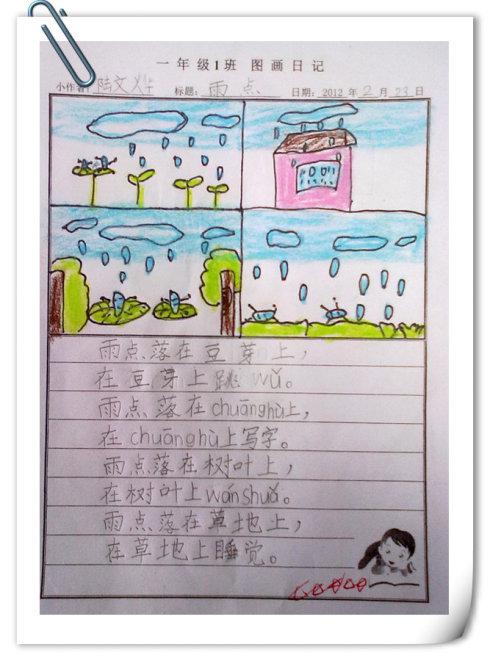 一年级1班 图画日记
小作者：陆文烨 标题：雨点 日期：2012年2月23日
雨点落在豆芽上，
在豆芽上跳wǔ。
雨点落在chuānghù上，
在chuānghù上写字。
雨点落在树叶上，
在树叶上wánshuǎ。
雨点落在草地上，
在草地上睡觉。